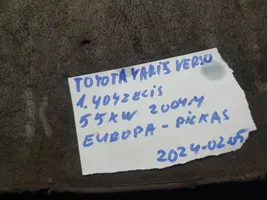 TOYOTA YARIS VERSO
1,404ZECIS
55KW 2004M
EUROPA-PICKAS
2024-02-05